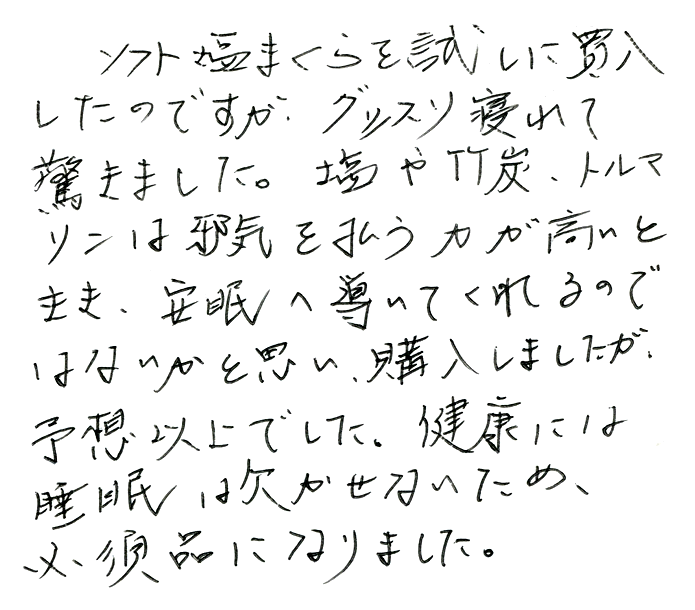 ソフト塩まくらを試しに買入
したのですが、グッスリ寝れて
驚きました。塩や竹炭、トルマ
リンは邪気を払う力が高いと
聞き、安眠へ導いてくれるので
はないかと思い、購入しましたが、
予想以上でした。健康には
睡眠は欠かせないため、
必須品になりました。